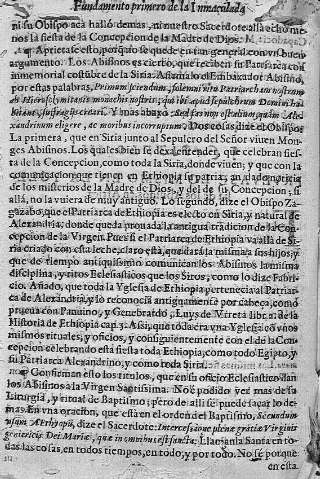 Fundamento primero de la Inmaculada
ni su Obispo acà hallò demas, ni nuestro Sacerdote allà echò menos la fiesta de la Concepcion de la Madre de Dios.
Aprietase esto, porque no se quede en tan general con vn buen
argumento. Los Abisinos es cierto, que reciben su Patriarca con
inmemorial costũbre de la Siria. Assi la el Embaxador Abisino,
por estas palabras, Primum sciendum, solemni rito Patriarcham nostrum
Hierosolymitanis monachis nostris, qui ibi apud sepulchrum Domini
suffragijs creari. Y mas abaxo:
eligere, ac mortuis incorruptum. Dos cosas dize el Obispo
La primera, que en Siria junto al Sepulcro del Señor viuen Monges
Abisinos. Los quales bien se dexa entender, que celebran fiesta
de la Concepcion, como toda la Siria, donde viuen; y que con la
comunicacion que tienen en Ethiopia su patria, an dado noticia
de los misterios de la Madre de Dios, y del de su Concepcion; si
allà, no la vuiera de muy antiguo. Lo segundo, dize el Obispo Zagazabo,
que el Patriarca de Ethiopia es electo en Siria, y natural de
Alexandria: donde queda prouada la antigua tradicion de la Concepcion
de la Virgen. Pues si el Patriarca de Ethiopia va allà de Siria
criado con esta leche, claro està, que darà la misma à sus hijos; y
que de tiempo antiquissimo comunicaron los Abisinos la misma
disciplina, y ritos Eclesiasticos que los Siros; como lo dize Fabricio.
Añado, que toda la Yglesia de Ethiopia pertenecia al Patriarca
de Alexandria, y lo reconocia antiguamente por cabeça, como
prueua con Panuino, y Genebrardo, Luys de Vrreta lib. 2. de la
Historia de Ethiopia cap. 3. Assi, que toda era vna Yglesia con vnos
mismos rituales, y oficios, y consiguientemente con el de la Concepcion
celebrando esta fiesta toda Ethiopia, como todo Egipto, y
su Patriarca Alexandrino; y como toda Siria.
Confirman esto los titulos, que en su oficio Eclesiastico dan
los Abisinos à la Virgen Santissima. No è podido ver mas de su
Liturgia, y ritual de Baptismo; pero de alli se puede sacar lo demas.
En vna oracion, que està en el orden del Baptismo, Secundum
vsum Aethiopum, dize el Sacerdote: Intercessione plenæ gratiæ Virginis
genitricis Dei Mariæ, quæ in omnibus est sancta. Llamanla Santa en todas
las cosas, en todos tiempos, en todo, y por todo. No sè porque
en esta.